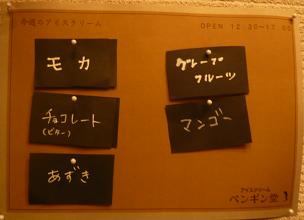 今週のアイスクリーム
OPEN 12:30~17:00
モカ
グレープ
フルーツ
チョコレート
(ビター)
マンゴー
あずき
アイスクリーム
ペンギン堂